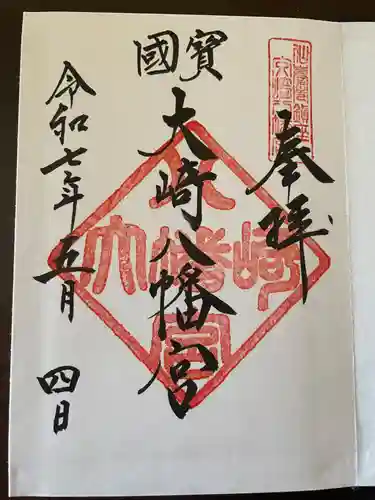 奉拝
國寳
大崎八幡宮
令和七年五月四日
大崎八幡宮